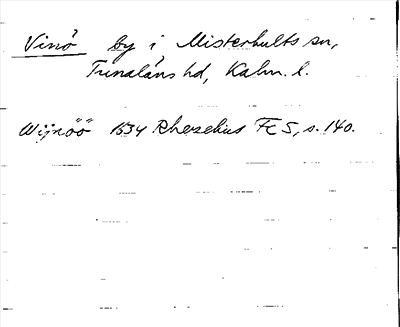 Vinö by i Misterhults sn,
Tunaläns hd, Kalm. l.
Wijnöö 1634 Rhezelius Fc 5, s. 140.